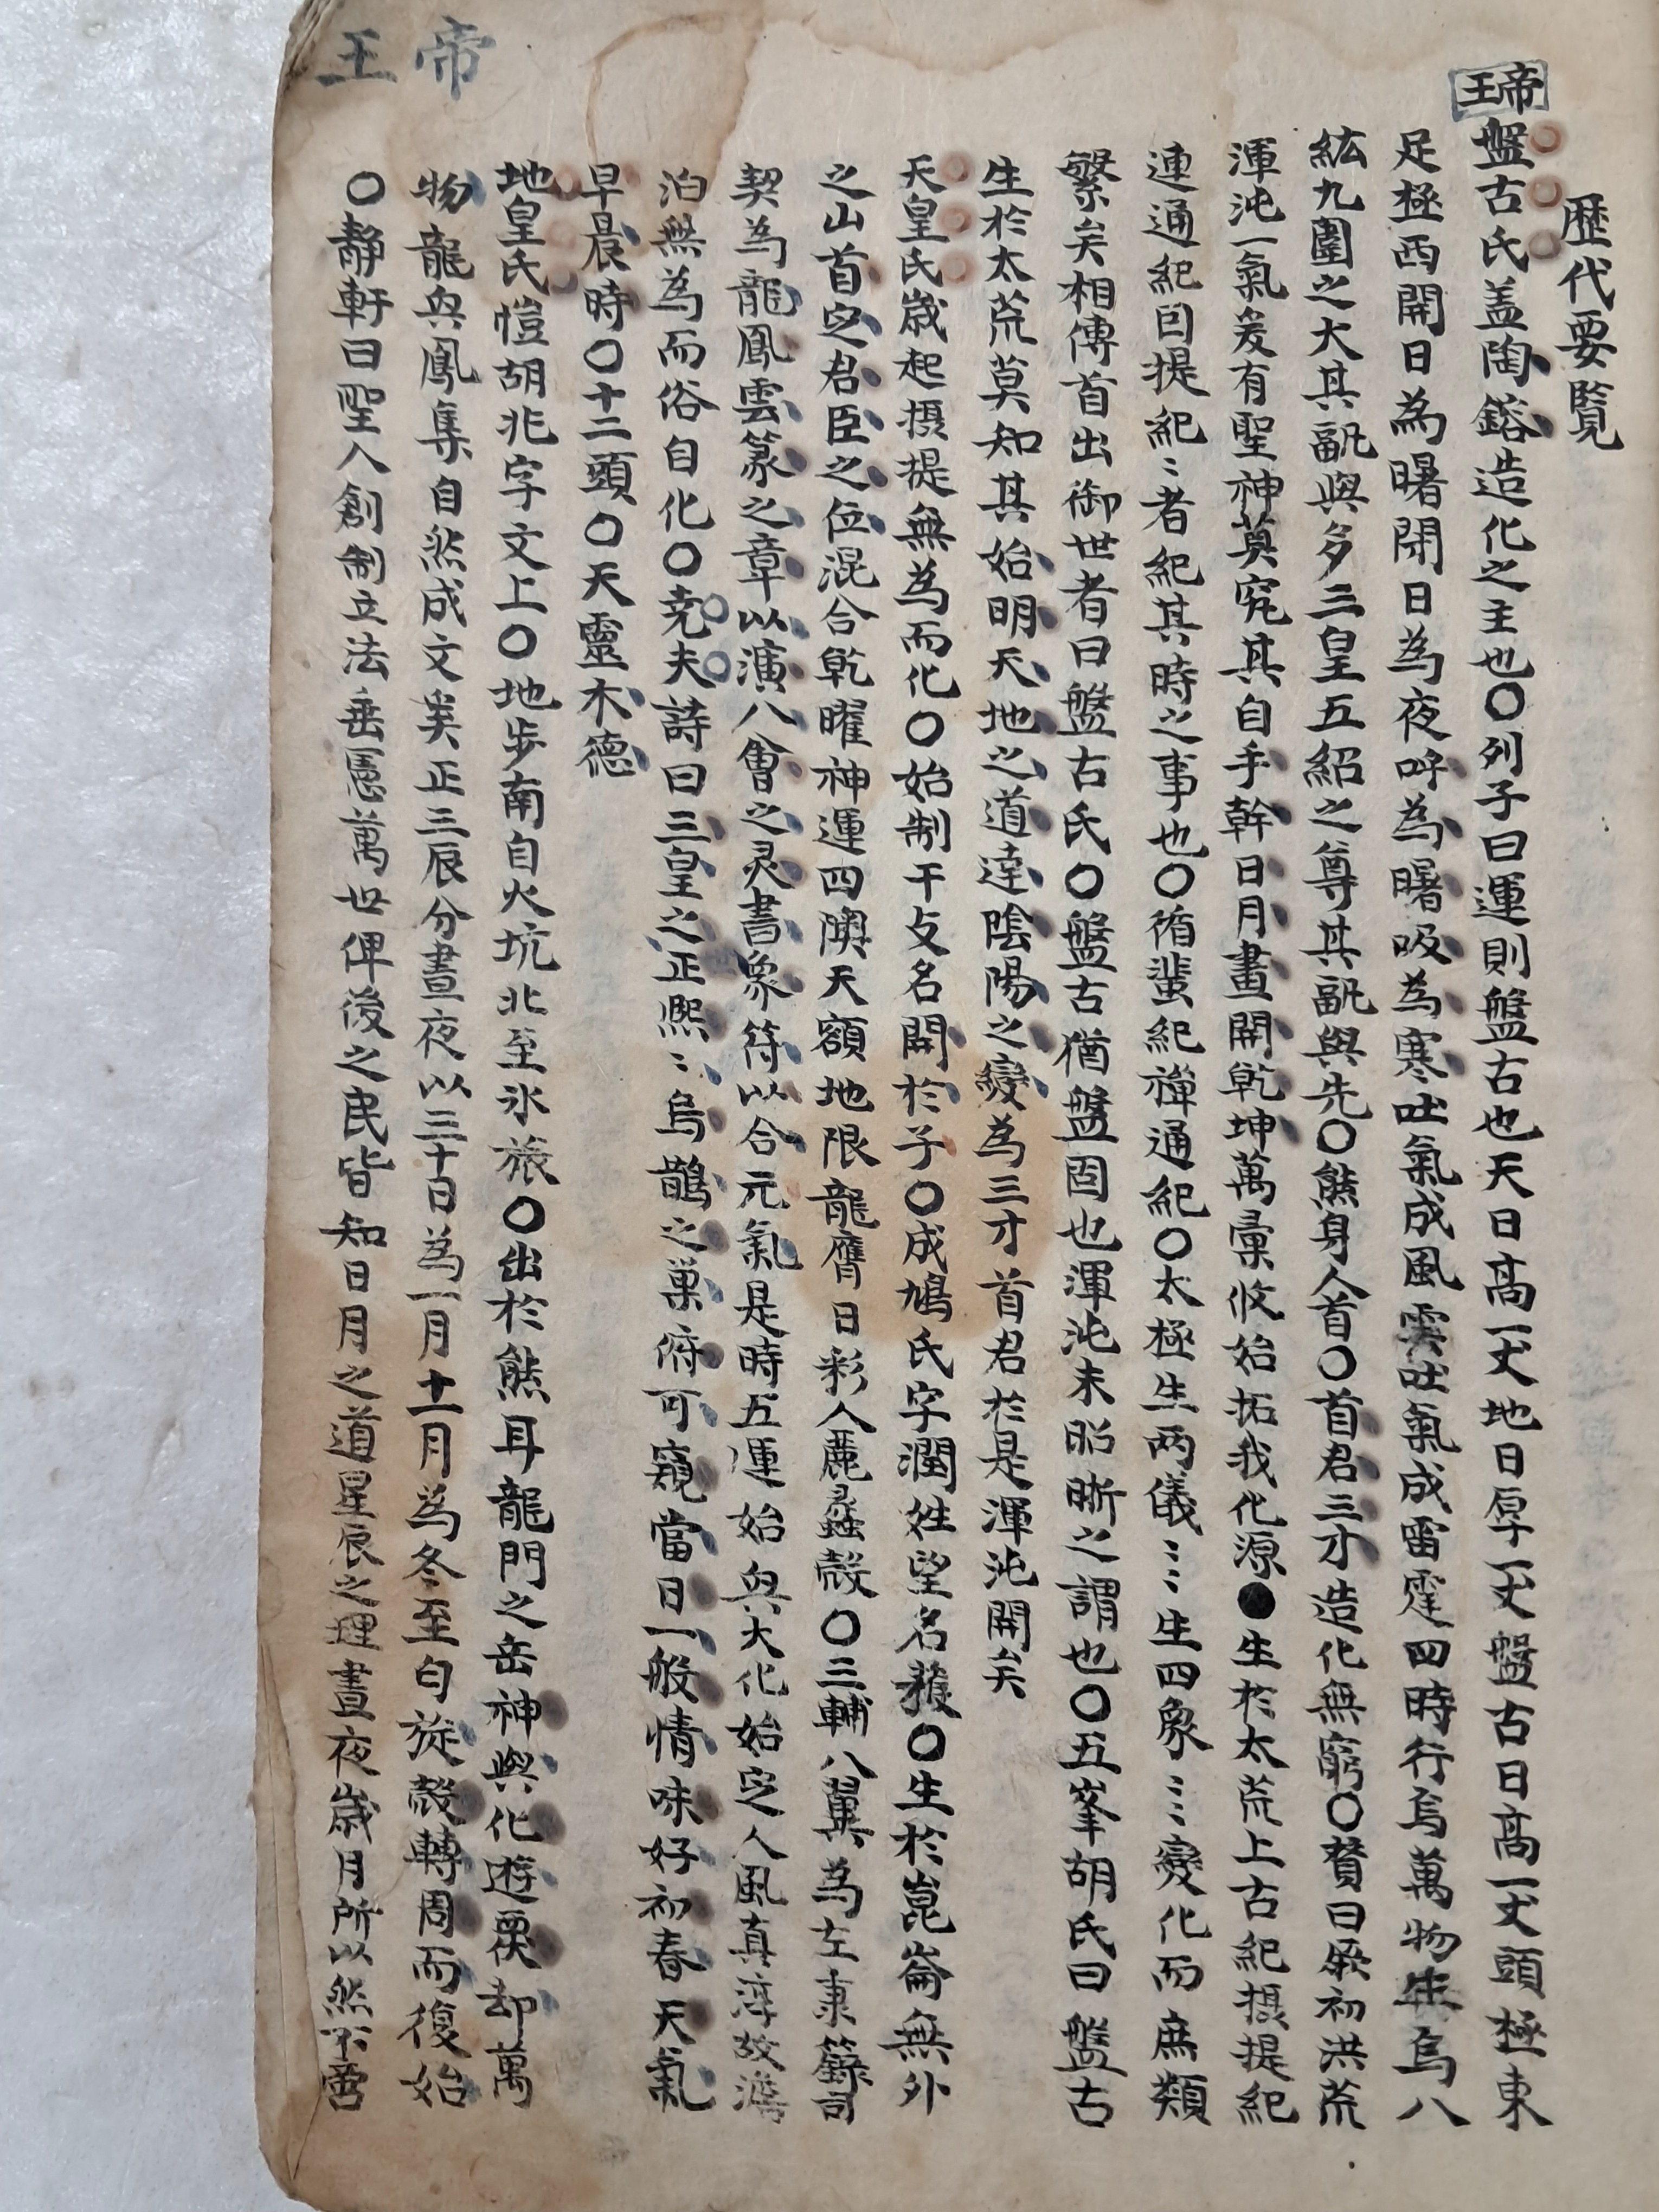 歷代要覽
帝王
盤古氏盖陶鎔造化之主也〇列子曰運則盤古也天日高一丈地日厚一丈盤古日高一丈頭極東
足極西開日為曙閉日為夜呼為曙吸為寒吐氣成風雲吐氣成雷霆四時行焉萬物生焉八
紘九圍之大其訊與多三皇五紹之尊其訊與先〇熊身人首〇首君三才造化無窮〇賛曰厥初洪荒
渾沌一氣爰有聖神莫究其自手斡日月畫開乾坤萬彙攸始拓我化源●生於太荒上古紀摂提紀
連通紀囙提紀〻者紀其時之事也〇循蜚紀禪通紀〇太極生两儀〻〻生四象〻〻變化而庶類
繁矣相傳首出御世者曰盤古氏〇盤古猶盤固也渾沌未昭晰之謂也〇五峯胡氏曰盤古
生於太荒莫知其始明天地之道達陰陽之變為三才首君於是渾沌開矣
天皇氏歲起摂提無為而化〇始制干攴名開於子〇成鳩氏字潤姓望名獲〇生於崑崙無外
之山首定君臣之位混合乾曜神運四隩天額地限龍膺日彩人麗螽殼〇三輔八翼為左隶籙司
契為龍鳳雲篆之章以演八會之灵書象符以合元氣是時五運始與大化始定人風真淳敦
泊無為而俗自化〇尭夫詩曰三皇之正熙〻烏鵲之巢俯可窺當日一般情味好初春天氣
早晨時〇十二頭〇天靈木德
地皇氏愷胡兆字文上〇地步南自火坑北至氷旅〇出於熊耳龍門之岳神與化遊覆却萬
物龍與鳳集自然成文奚正三辰分晝夜以三十日為一月十一月為冬至旬旋殼轉周而復始
〇靜軒曰聖人創制立法垂憲萬世俾後之民皆知日月之道星辰之理晝夜歲月所以然不啻
帝王